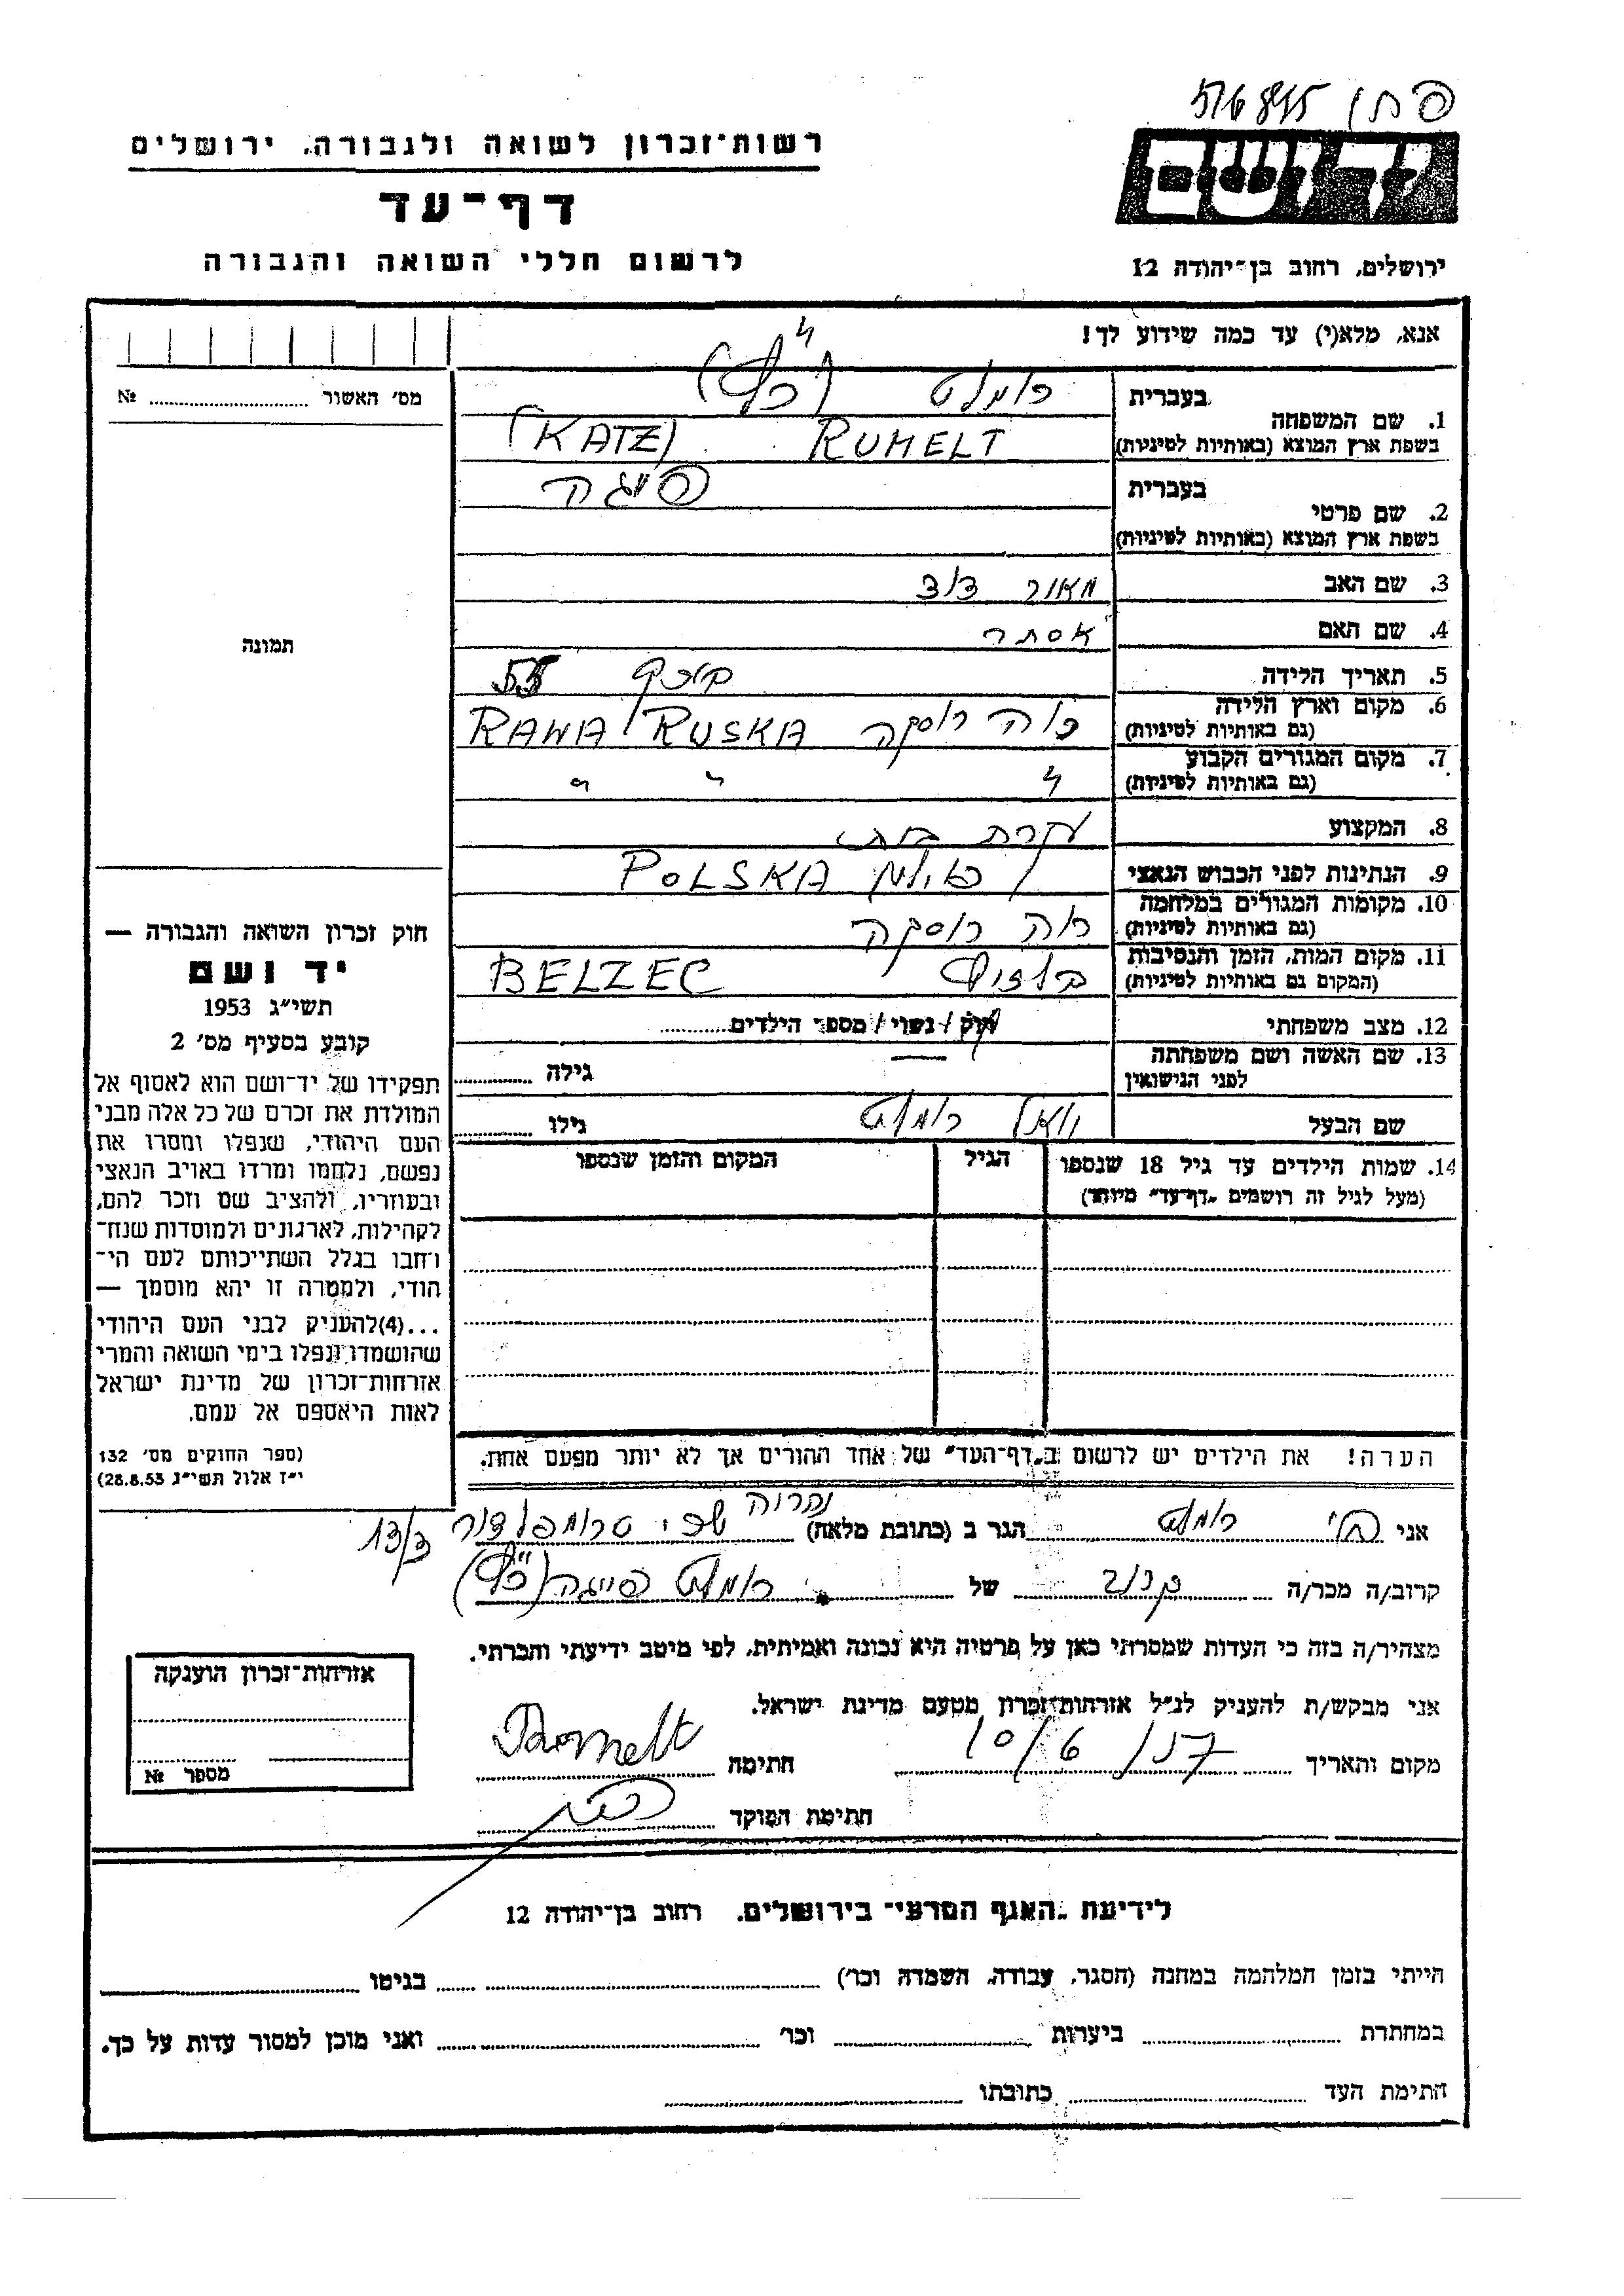 רשות־זכרון לשואה ולגבורה, ירושלים
דף־עד
לרשום חללי השואה והגבורה
יד ושם
ירושלים, רחוב בן־יהודה 12
אנא, מלא(י) עד כמה שידוע לך!
מס׳ האשור ........ №
תמונה
1. שם המשפחה
בעברית רומלט (כץ)
בשפת ארץ המוצא (באותיות לטיניות) RUMELT (KATZ)
2. שם פרטי
בעברית פייגה
בשפת ארץ המוצא (באותיות לטיניות)
3. שם האב מאור
4. שם האם אסתר
5. תאריך הלידה 55
6. מקום וארץ הלידה
(גם באותיות לטיניות) רוה רוסקה RAWA RUSKA
7. מקום המגורים הקבוע
(גם באותיות לטיניות) " " "
8. המקצוע עקרת בית
9. הנתינות לפני הכבוש הנאצי פולין POLSKA
10. מקומות המגורים במלחמה
(גם באותיות לטיניות) רוה רוסקה
11. מקום המות, הזמן והנסיבות
(המקום גם באותיות לטיניות) בלזיץ BELZEC
12. מצב משפחתי רוק / נשוי / מספר הילדים........
13. שם האשה ושם משפחתה
לפני הנישואין גילה ........
שם הבעל רומלט גילו ........
14. שמות הילדים עד גיל 18 שנספו
(מעל לגיל זה רושמים „דף־עד״ מיוחד)
הגיל
המקום והזמן שנספו
הערה! את הילדים יש לרשום ב„דף־העד״ של אחד ההורים אך לא יותר מפעם אחת.
חוק זכרון השואה והגבורה —
יד ושם
תשי״ג 1953
קובע בסעיף מס׳ 2
תפקידו של יד־ושם הוא לאסוף אל
המולדת את זכרם של כל אלה מבני
העם היהודי, שנפלו ומסרו את
נפשם, נלחמו ומרדו באויב הנאצי
ובעוזריו, ולהציב שם וזכר להם,
לקהילות, לארגונים ולמוסדות שנח־
רבו בגלל השתייכותם לעם הי־
הודי, ולמטרה זו יהא מוסמך —
...(4)להעניק לבני העם היהודי
שהושמדו ונפלו בימי השואה והמרי
אזרחות־זכרון של מדינת ישראל
לאות היאספם אל עמם.
(ספר החוקים מס׳ 132
י״ז אלול תשי״ג 28.8.53)
אני רומלט הגר ב (כתובת מלאה) נהריה טרומפלדור 13/3
קרוב/ה מכר/ה של רומלט פייגה (כץ)
מצהיר/ה בזה כי העדות שמסרתי כאן על פרטיה היא נכונה ואמיתית, לפי מיטב ידיעתי והכרתי.
אני מבקש/ת להעניק לנ״ל אזרחות־זכרון מטעם מדינת ישראל.
מקום ותאריך 10/6 חתימה
חתימת הפוקד
אזרחות־זכרון הוענקה
מספר №
לידיעת „האגף המדעי״ בירושלים, רחוב בן־יהודה 12
הייתי בזמן המלחמה במחנה (הסגר, עבודה, השמדה וכו׳) ........ בגיטו ........
במחתרת ........ ביערות ........ וכו׳ ........ ואני מוכן למסור עדות על כך.
חתימת העד ........ כתובתו ........